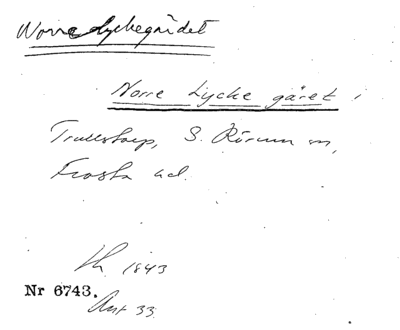 Norre Lyckegärdet
Norre Lycke gäret i
Trulstorp, S. Rörum sn,
Frosta hd.
lh. 1843
Nr 6743.
Ant 33.